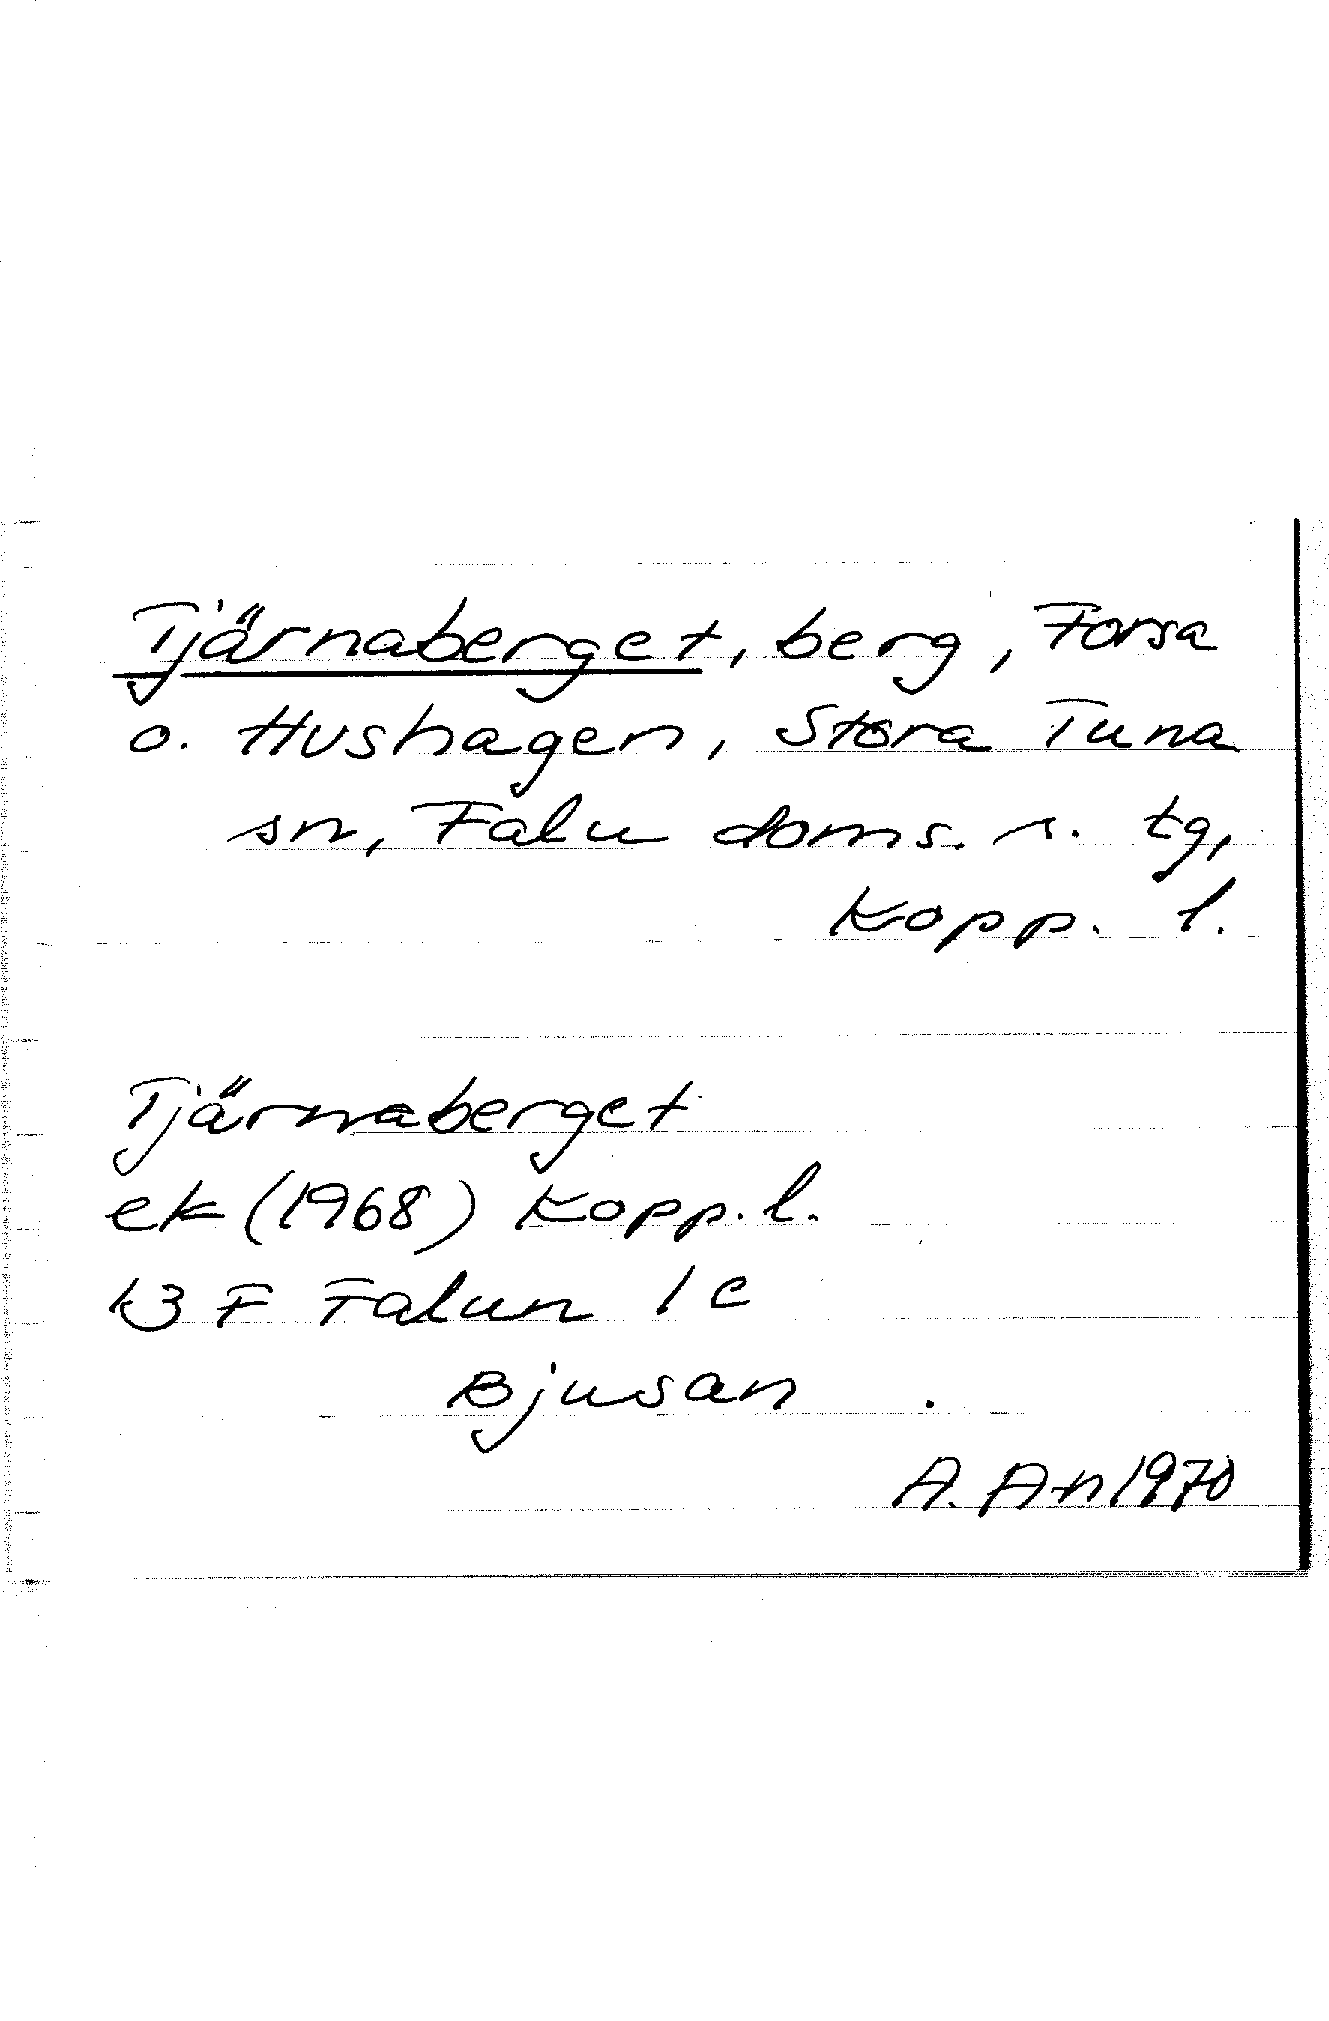 Tjärnaberget, berg, Forsa
o. Hushagen, Stora Tuna
sn, Falu doms. s. tg,
Kopp. l.
Tjärnaberget
ek (1968) Kopp. l.
13 F Falun 1 c
Bjusan
A. An 1970